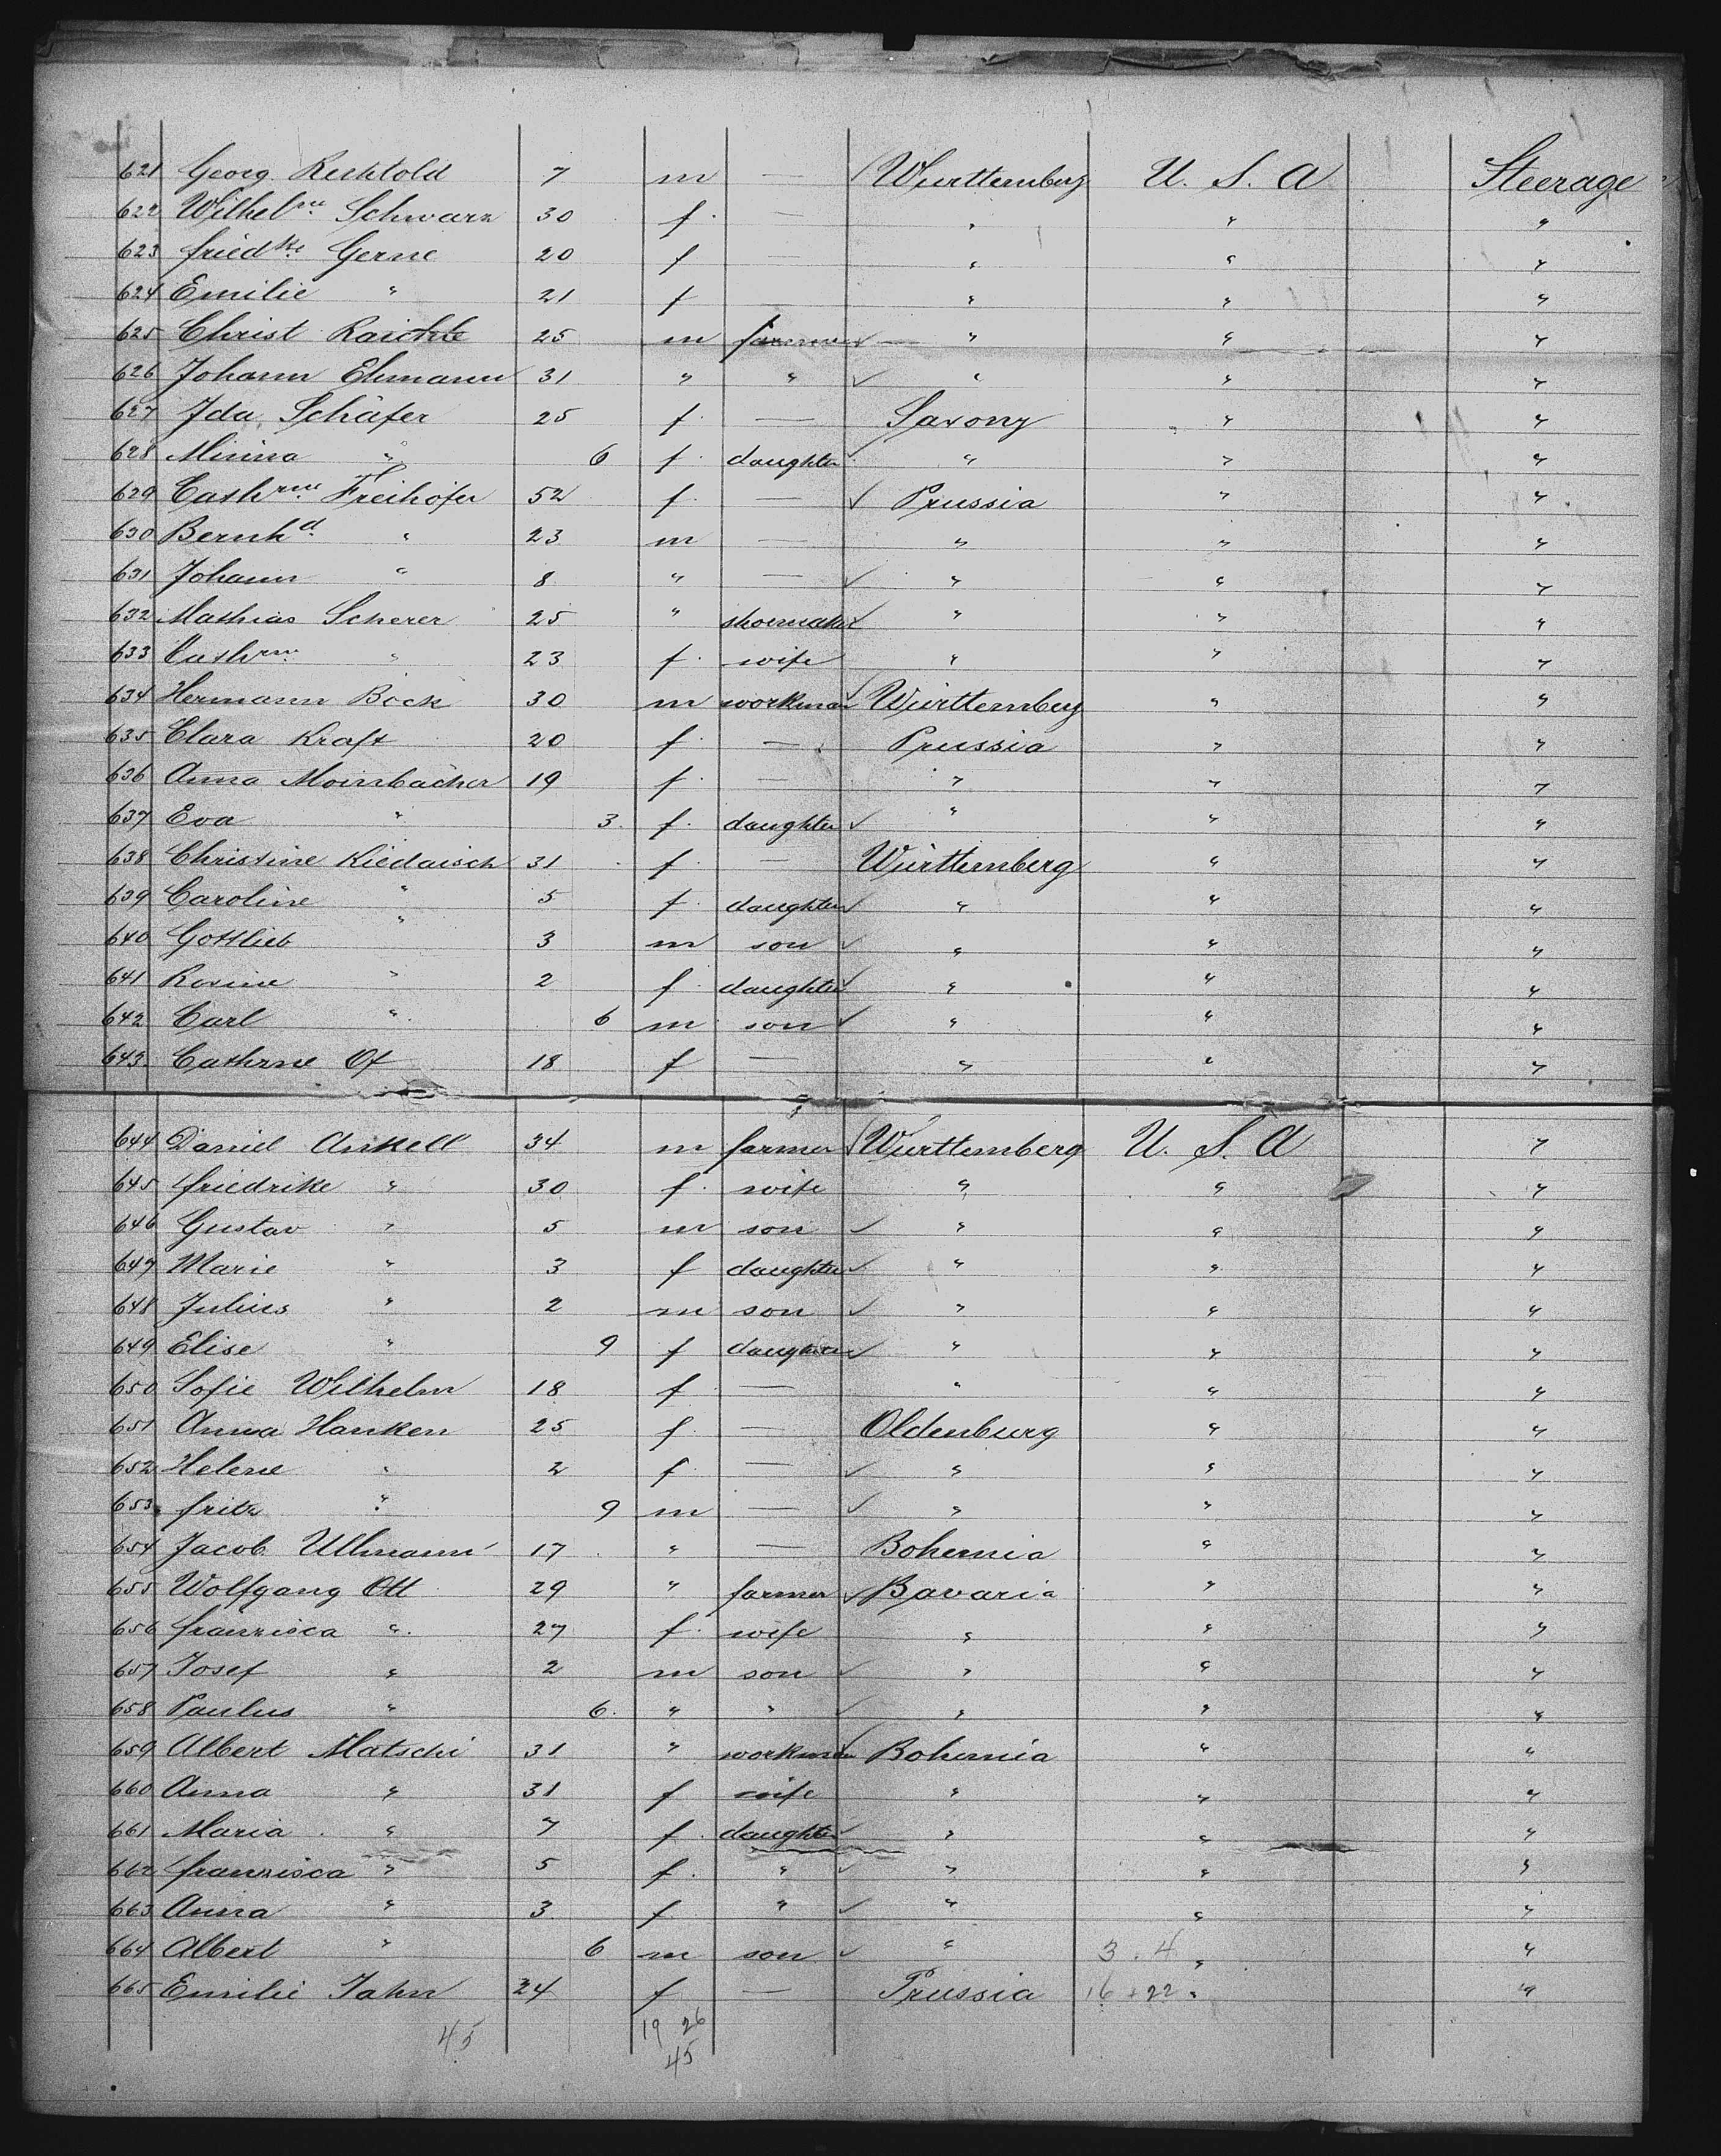 621 Georg Rechtold 7 m — Württemberg U. S. A Steerage
622 Wilhel^ne. Schwarz 30 f. — " " "
623 Fried^ke. Gerne 20 f — " " "
624 Emilie " 21 f — " " "
625 Christ Raichle 25 m farmer — " " "
626 Johann Ehmann 31 " " ✓ " " "
627 Ida Schäfer 25 f. — Saxony " "
628 Minna " 6 f. daughter ✓ " " "
629 Cath^rne. Freihöfer 52 f. — ✓ Prussia " "
630 Bernh^d. " 23 m — " " "
631 Johann " 8 " — ✓ " " "
632 Mathias Scherer 25 " shoemaker ✓ " " "
633 Cath^rne. " 23 f. wife " " "
634 Hermann Böck 30 m workman ✓ Württemberg " "
635 Clara Kraft 20 f. — Prussia " "
636 Anna Moinbacher 19 f. — " " "
637 Eva " 3. f. daughter ✓ " " "
638 Christine Kiedaisch 31 f. — Württemberg " "
639 Caroline " 5 f. daughter ✓ " " "
640 Gottlieb " 3 m son ✓ " " "
641 Rosine " 2 f. daughter ✓ " " "
642 Carl " 6 m son ✓ " " "
643. Cathrne Of 18 f — " " "
644 Daniel Ankell 34 m farmer Württemberg U. S. A "
645 Friedrike " 30 f. wife " " "
646 Gustav " 5 m son ✓ " " "
647 Marie " 3 f daughter ✓ " " "
648 Julius " 2 m son ✓ " " "
649 Elise " 9 f daughter ✓ " " "
650 Sofie Wilhelm 18 f. — " " "
651 Anna Hanken 25 f. — Oldenburg " "
652 Helene " 2 f. — ✓ " " "
653. Fritz " 9 m — ✓ " " "
654 Jacob Ullmann 17 " — Bohemia " "
655 Wolfgang Ott 29 " farmer ✓ Bavaria " "
656 Franzisca " 27 f. wife " " "
657 Josef " 2 m son ✓ " " "
658 Paulus " 6. " " ✓ " " "
659 Albert Matschi 31 " workman ✓ Bohemia " "
660 Anna " 31 f wife " " "
661 Maria " 7 f. daughter ✓ " " "
662 Franzisca " 5 f. " ✓ " " "
663 Anna " 3 f " ✓ " " "
664 Albert " 6 m son ✓ " 3. 4 " "
665 Emilie Jahn 24 f — Prussia 16 + 22 " "
45 19 26
45